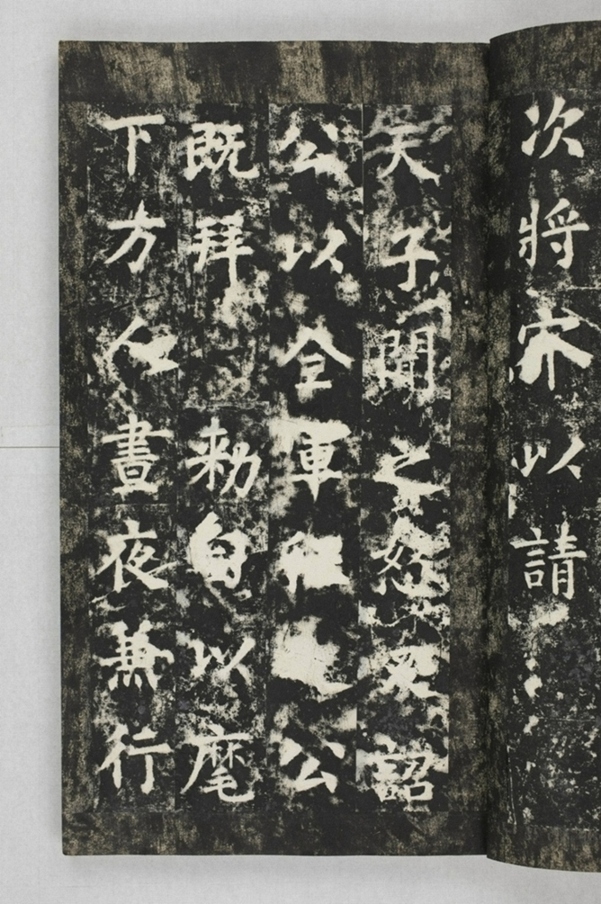 次將以請
天子聞之怒詔
公以全軍公
既拜勅自以麾
下方仁晝夜兼行